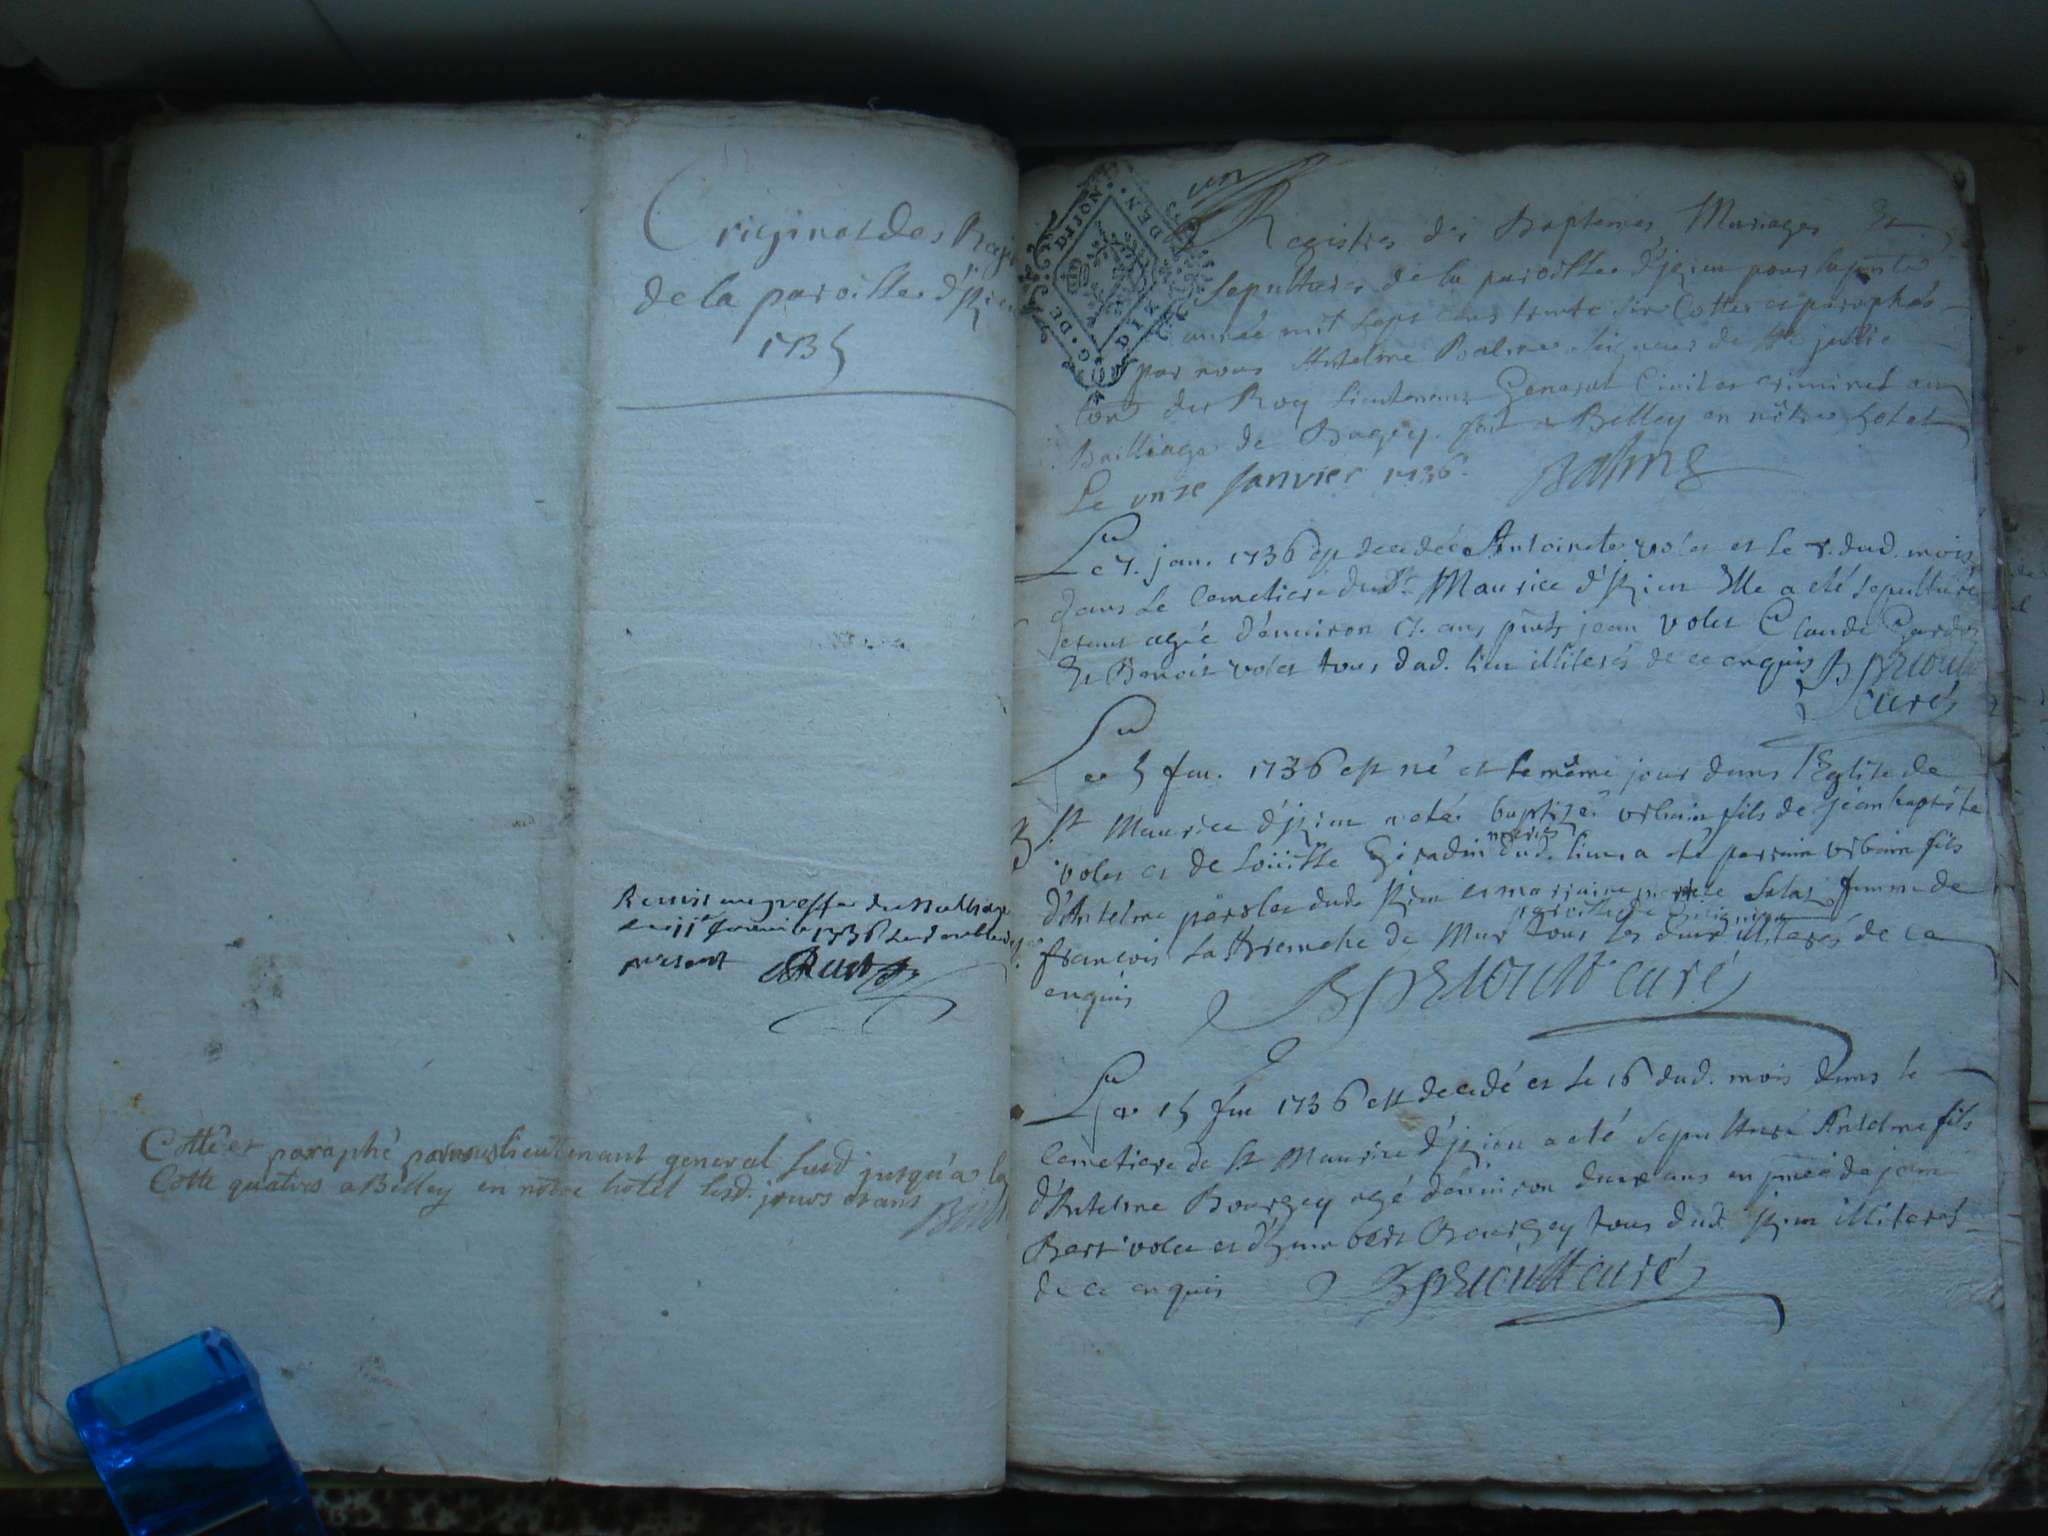 Originel des Regi
de la paroisse d'Izieu
1735
Remis au greffe du Bailliage
le 11e janvie 1736
present
Cotté et paraphé par nous lieutenant general susd jusqu'a la
Cotte quatres a Belley en nôtre hotel lesd. jours et ans
un
G. DE DIJON
Registres des Baptemes Mariages Et
Sepultures de la paroisse d'Izieu pour la pnte
année mil sept cens trente six Cottés et paraphés
par nous Antelme Balme Seigneur de Ste jullie
Conr du Roy Lieutenant General Civil et criminel au
Bailliage de Bugey. fait a Belley en nôtre hotel
Le unze Janvier 1736. Balme
Le 7. jan. 1736 est decedée Antoinete volet et le 8. dud. mois
dans le Cemetiere de St Maurice d'Izieu Elle a eté sepulturée
etant agée d'environ ans pnts jean volet Claude
Et Benoit volet tous dud. lieu illiterés de ce enquis
curé
Le 5 fev. 1736 est né et le même jour dans l'Eglise de
St Maurice d'Izieu a eté baptizé urbain fils de jean baptiste
volet et de Louïse Giradin mariés dud. lieu a eté parrain urbain fils
d'Antelme dud. Izieu et marraine femme de
françois de Mur tous les illiterés de ce
enquis curé
Le 15 fev 1736 est decedé et le 16 dud. mois dans le
Cemetiere de St Maurice d'Izieu a eté sepulturé Antelme fils
d'Antelme Bourgey agé d'environ deux ans en pnce de jean
Bapt volet et d'humbert Bourgey tous dud. Izieu illiterés
de ce enquis curé